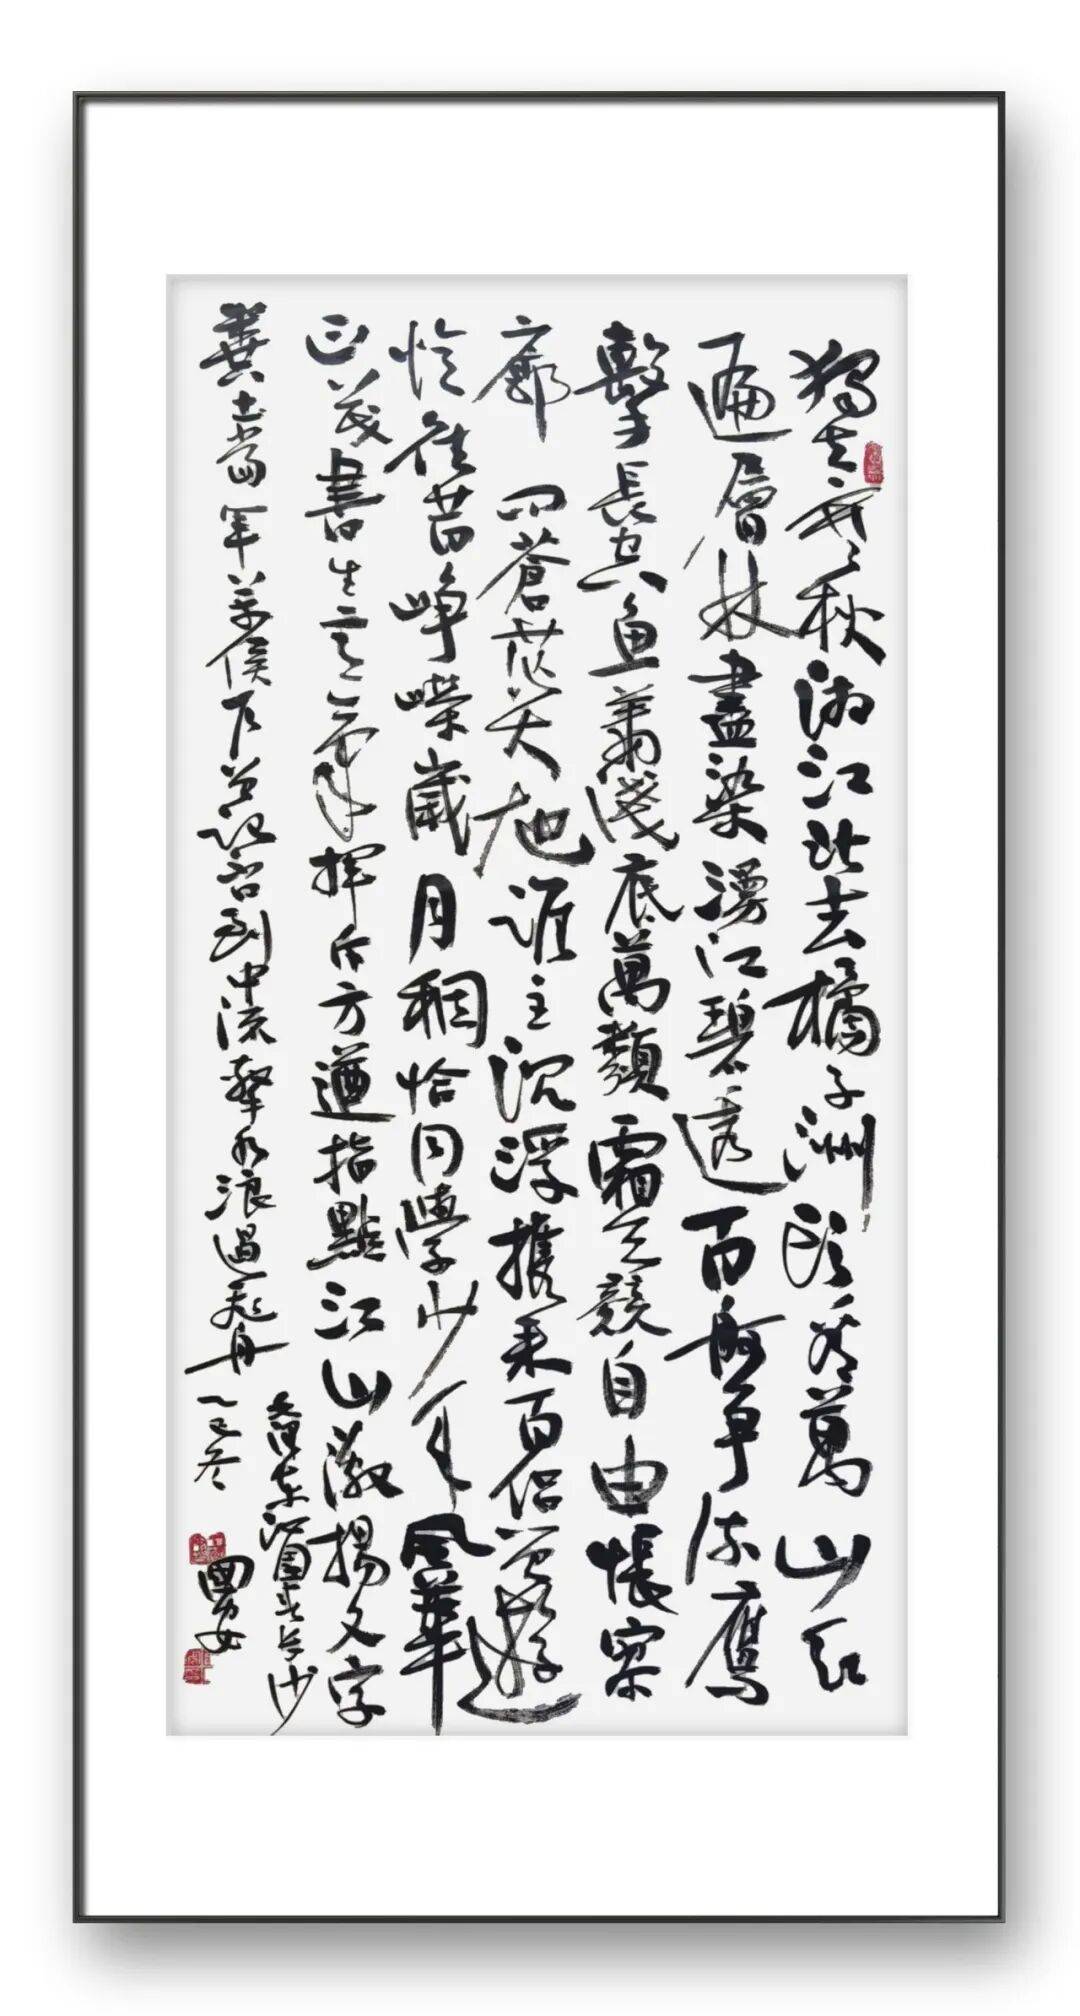 獨立寒秋湘江北去橘子洲頭看萬山紅
遍層林盡染漫江碧透百舸爭流鷹
擊長空鱼翔淺底萬類霜天競自由悵寥
廓問蒼茫大地誰主沉浮攜來百侣曾遊
憶往昔崢嶸歲月稠恰同學少年風華
正茂書生意氣揮斥方遒指點江山激揚文字
糞土當年萬侯户曾記否到中流擊水浪遏飛舟
毛澤東沁園春長沙
乙巳冬